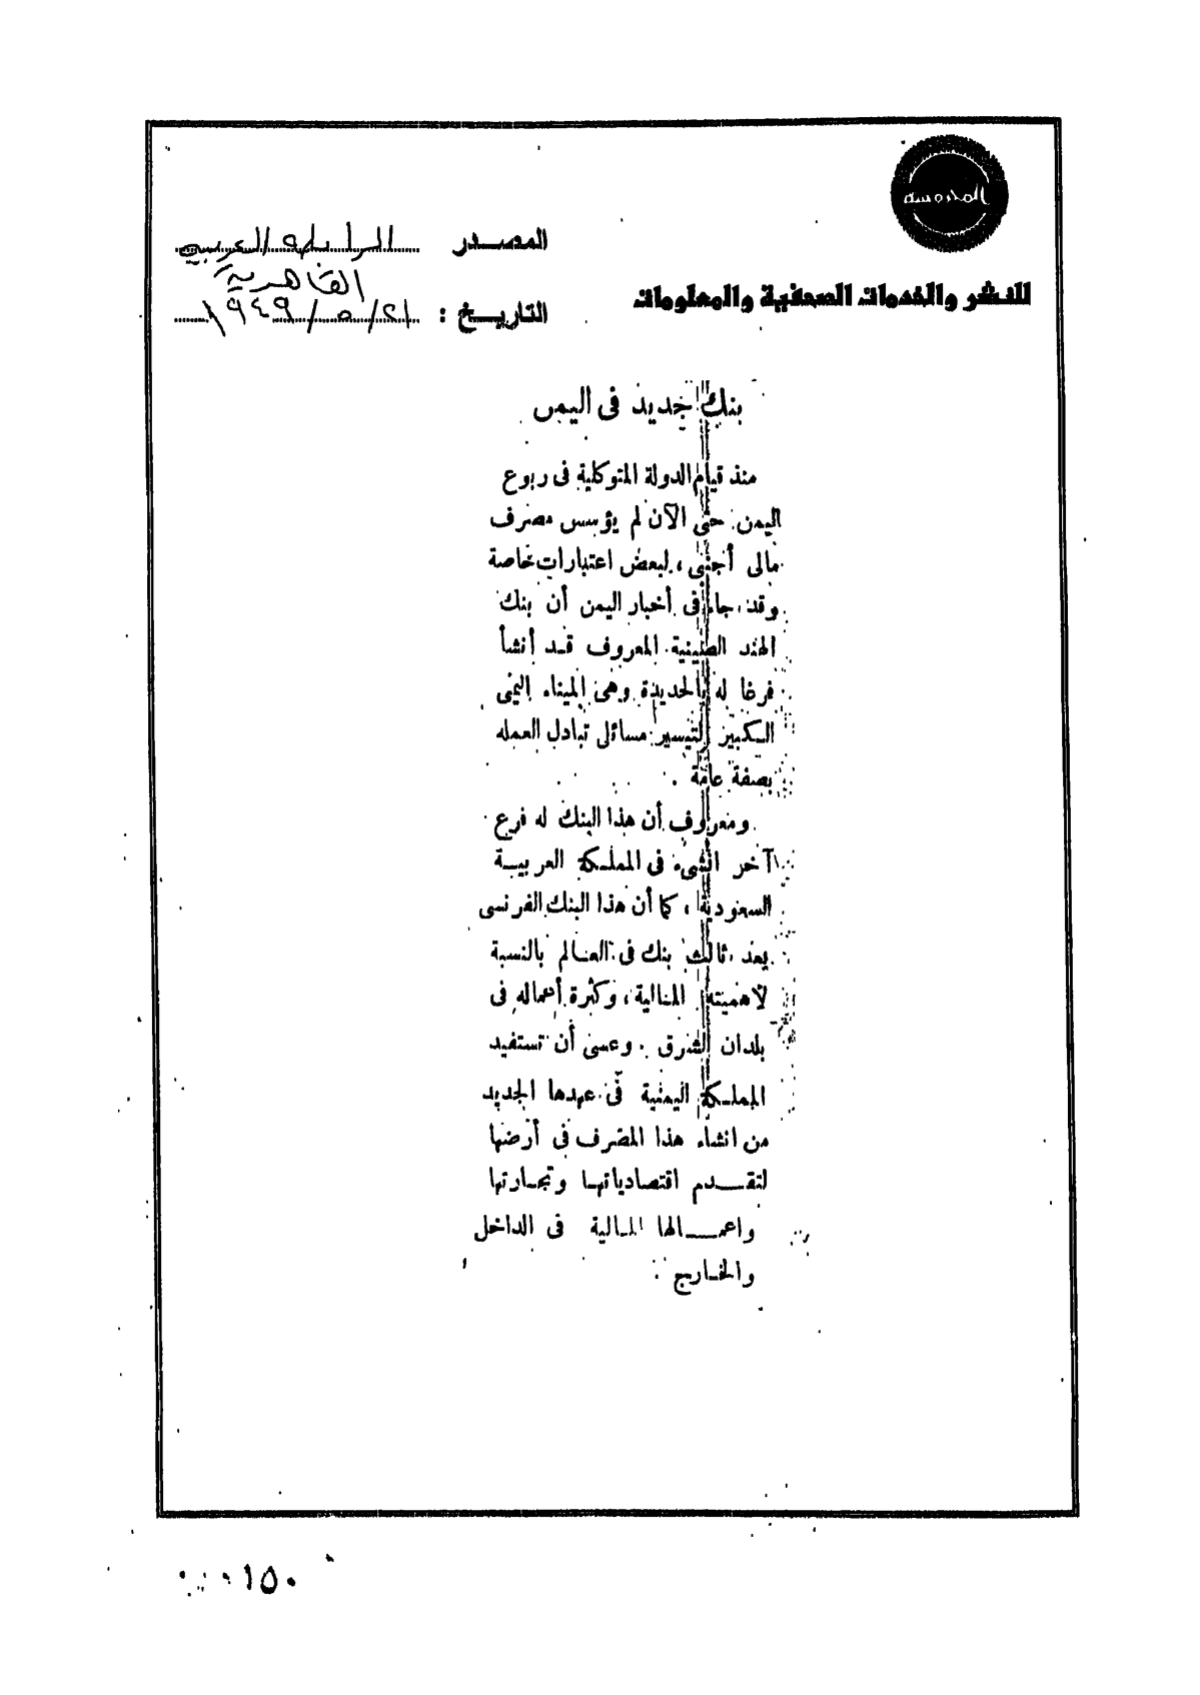 المحروسة
للنشر والخدمات الصحفية والمعلومات
المصدر الرابطة العربية
القاهرية
التاريخ : ٢١/٥/١٩٤٩
بنك جديد فى اليمن
منذ قيام الدولة المتوكلية فى ربوع
اليمن حتى الآن لم يؤسس مصرف
مالى أجنبى ، لبعض اعتبارات خاصة
وقد جاء فى أخبار اليمن أن بنك
الهند الصينية المعروف قد أنشأ
فرعا له بالحديدة وهى الميناء اليمنى
الكبير لتيسير مسائل تبادل العمله
بصفة عامة .
ومعروف أن هذا البنك له فرع
آخر انشىء فى المملكة العربية
السعودية ، كما أن هذا البنك الفرنسى
يعد ثالث بنك فى العالم بالنسبة
لاهميته المالية ، وكثرة أعماله فى
بلدان الشرق . وعسى أن تستفيد
المملكة اليمنية فى عهدها الجديد
من انشاء هذا المصرف فى أرضها
لتقدم اقتصادياتها وتجارتها
واعمالها المالية فى الداخل
والخارج .
١٥٠